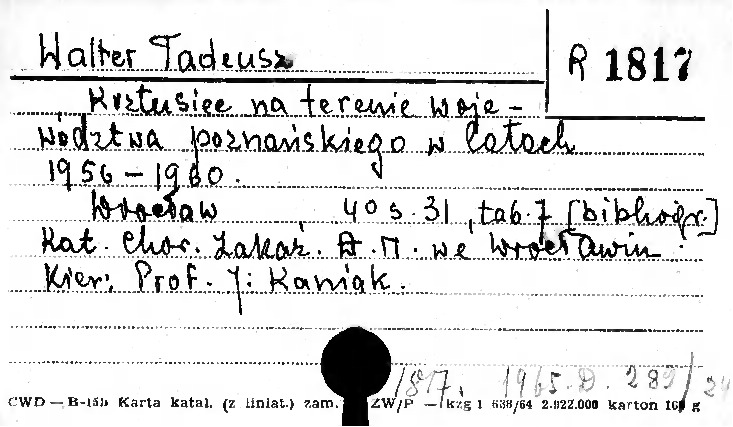 Walter Tadeusz
R 1817
Krztusiec na terenie woje-
wództwa poznańskiego w latach
1956-1960.
Wrocław, 40 s. 31, tab. 7 [bibliogr.]
Kat. Chor. Zakaź. A.M. we Wrocławiu.
Kier: Prof. J: Kaniak.
1817. 1965.D. 289/24
CWD — B-15b Karta katal. (z liniat.) zam. ZW/P — kzg 1 638/64 2.922.000 karton 160 g